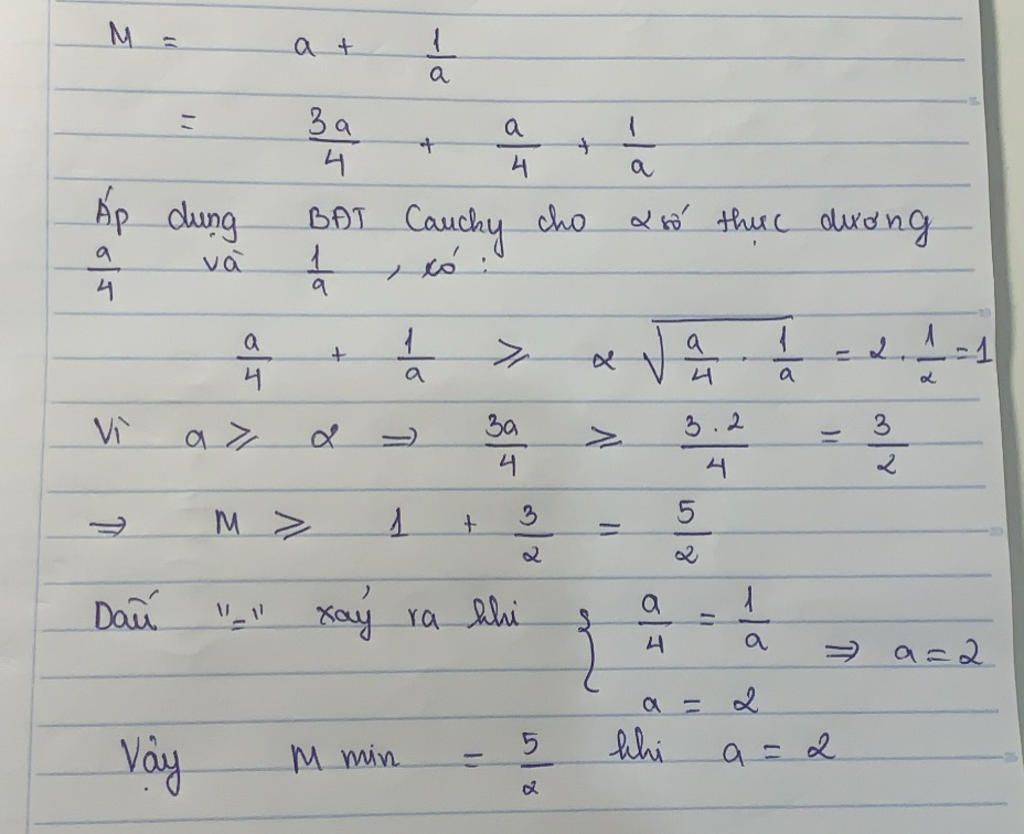 M = a + 1/a
= 3a/4 + a/4 + 1/a
Áp dụng BĐT Cauchy cho 2 số thực dương
a/4 và 1/a , có :
a/4 + 1/a ⩾ 2 √(a/4 . 1/a) = 2 . 1/2 = 1
Vì a ⩾ 2 ⇒ 3a/4 ⩾ 3 . 2/4 = 3/2
⇒ M ⩾ 1 + 3/2 = 5/2
Dấu "=" xảy ra khi { a/4 = 1/a ⇒ a = 2
a = 2
Vậy M min = 5/2 khi a = 2